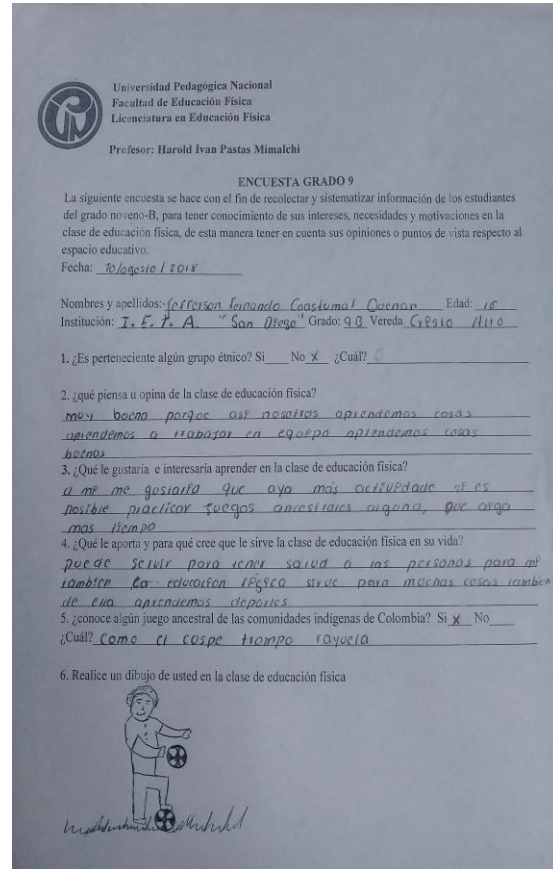 Universidad Pedagógica Nacional
Facultad de Educación Física
Licenciatura en Educación Física
Profesor: Harold Ivan Pastas Mimalchi
ENCUESTA GRADO 9
La siguiente encuesta se hace con el fin de recolectar y sistematizar información de los estudiantes
del grado noveno-B, para tener conocimiento de sus intereses, necesidades y motivaciones en la
clase de educación física, de esta manera tener en cuenta sus opiniones o puntos de vista respecto al
espacio educativo.
Fecha: 10/agosto / 2018
Nombres y apellidos: Jefferson fernando Cuastumal Edad:
Institución: I. E. T. A. "San Diego" Grado: 9B Vereda Alto
1. ¿Es perteneciente algún grupo étnico? Si No X ¿Cuál?
2. ¿qué piensa u opina de la clase de educación física?
muy buena porque asi nosotros aprendemos cosas
aprendemos a trabajar en equipo aprendemos cosas
buenas
3. ¿Qué le gustaría e interesaría aprender en la clase de educación física?
a mi me gustaria que aya más actividade si es
posible practicar juegos ancestrales alguno, que aiga
mas tiempo
4. ¿Qué le aporta y para qué cree que le sirve la clase de educación física en su vida?
puede servir para tener salud a las personas para mi
tambien la educacion fisica sirve para muchas cosas tambien
de ella aprendemos deportes
5. ¿conoce algún juego ancestral de las comunidades indígenas de Colombia? Si X No
¿Cuál? como el cuspe trompo rayuela
6. Realice un dibujo de usted en la clase de educación física